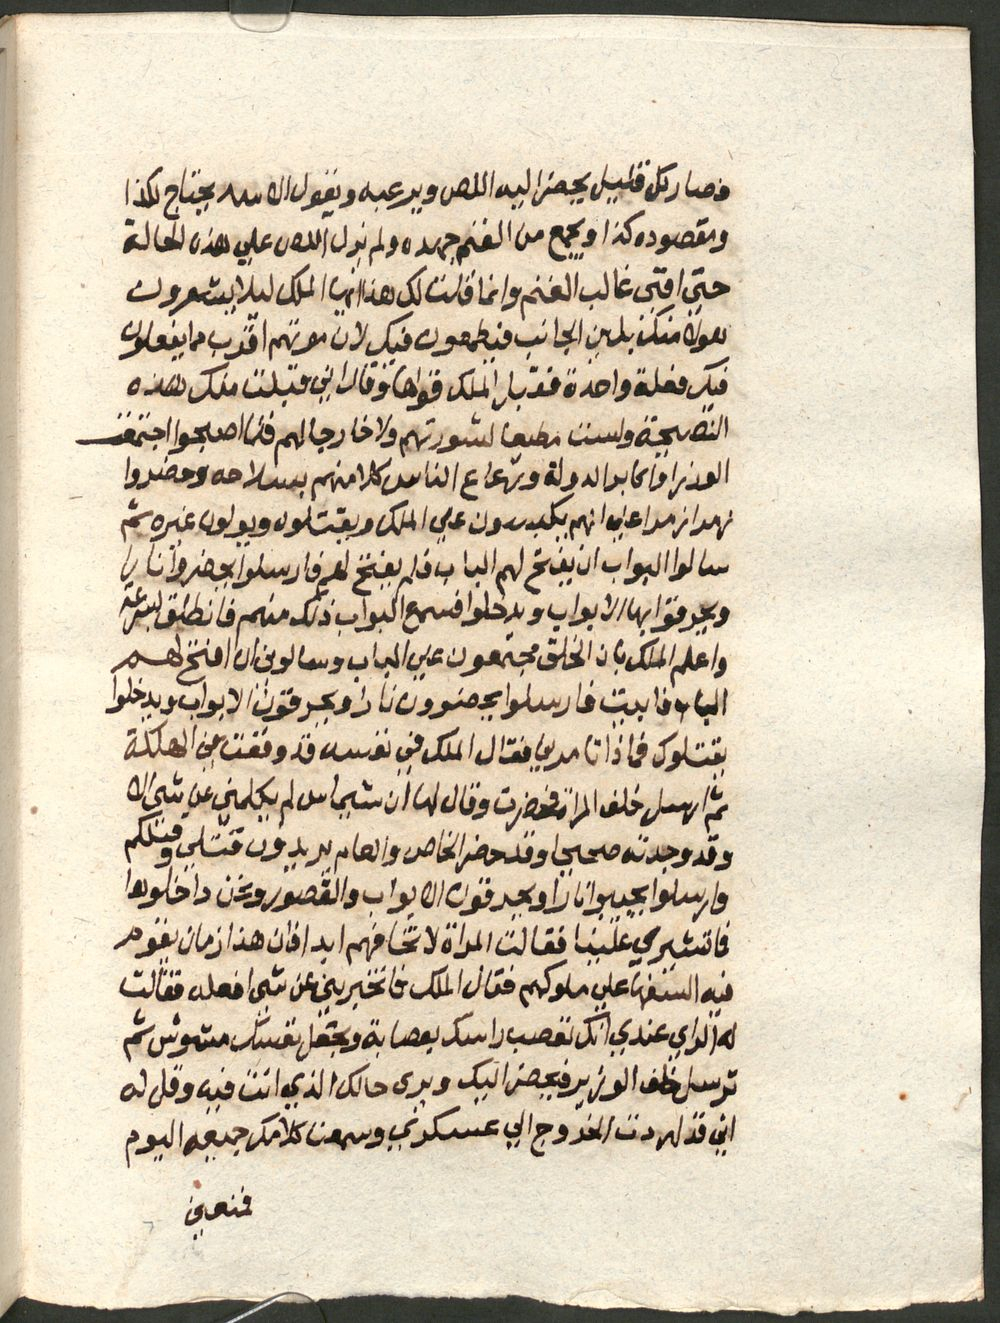 فصار كل قليل يحضر اليه اللص ويرعبه ويقول الاسد يحتاج لكذا
ومقصوده كذا ويجمع من الغنم جهده ولم يزل اللص علي هذه الحالة
حتي افني غالب الغنم وانما قلت لك هذا ايها الملك ليلا يشعرون
هولا منك بلين الجانب فيطمعون فيك لان موتهم اقرب مما يفعلون
فيك فعلة واحدة فقبل الملك قولها وقال اني قبلت منك هذه
النصيحة ولست مطيعا لمشورتهم ولا خارجا لهم فلما اصبحوا اجتمعت
الوزرا واكابر الدولة ورعاع الناس كلا منهم بسلاحه وحضروا
انهم يكبسون علي الملك ويقتلوه ويولون غيره ثم
سالوا البواب ان يفتح لهم الباب فلم يفتح لهم فارسلوا يحضروا نارا
ويحرقوا بها الابواب ويدخلوا فسمع البواب ذلك منهم فانطلق بسرعة
واعلم الملك بان الخلق مجتمعون علي الباب وسالوني ان افتح لهم
الباب فابيت فارسلوا يحضرون نارا ويحرقون الابواب ويدخلوا
يقتلوك فماذا تامرني فقال الملك في نفسه قد وقعت في الهلكة
ثم ارسل خلف المراة فحضرت وقال لها ان شيماس لم يكلمني عن شي الا
وقد وجدته صحيحا وقد حضر الخاص والعام يريدون قتلي وقتلكم
وارسلوا يجيبوا نارا ويحرقون الابواب والقصور ونحن داخلوها
فما تشيري علينا فقالت المراة لا تخافهم ابدا فان هذا زمان يقوم
فيه السفها علي ملوكهم فقال الملك فما تخبريني عن شي افعله فقالت
له الراي عندي انك تعصب راسك بعصابة وتجعل نفسك مشوش ثم
ترسل خلف الوزير فيحضر اليك ويرى حالك الذي انت فيه وقل له
اني قد اردت الخروج الي عسكري وسمعت كلامك جميعه اليوم
فمنعني